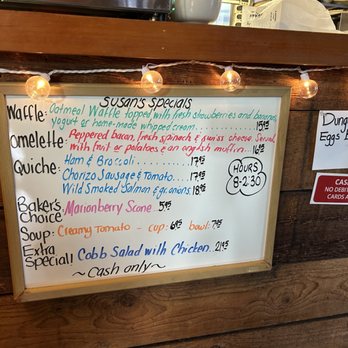 Susan's Specials
Waffle: Oatmeal Waffle topped with fresh strawberries and bananas,
yogurt or home-made whipped cream
Omelette: Peppered bacon, fresh spinach & cheese Served
with fruit or potatoes and an english muffin. 16.95
Quiche: Ham & Broccoli 17.95
Chorizo Sausage & Tomato 17.95
Wild Smoked Salmon & onions 18.95
HOURS
8-2:30
Baker's Choice: Marionberry Scone 5.95
Soup: Creamy Tomato - cup: bowl:
Extra Special: Cobb Salad with Chicken. 21.95
~ Cash only ~
Eggs
CAS
NO DEBI
CARDS A